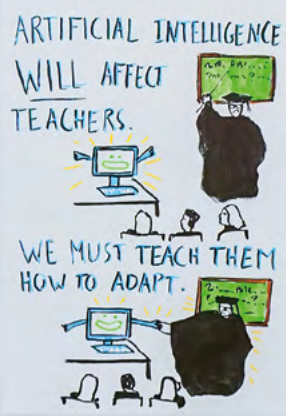 ARTIFICIAL INTELLIGENCE
WILL AFFECT
TEACHERS.
WE MUST TEACH THEM
HOW TO ADAPT.